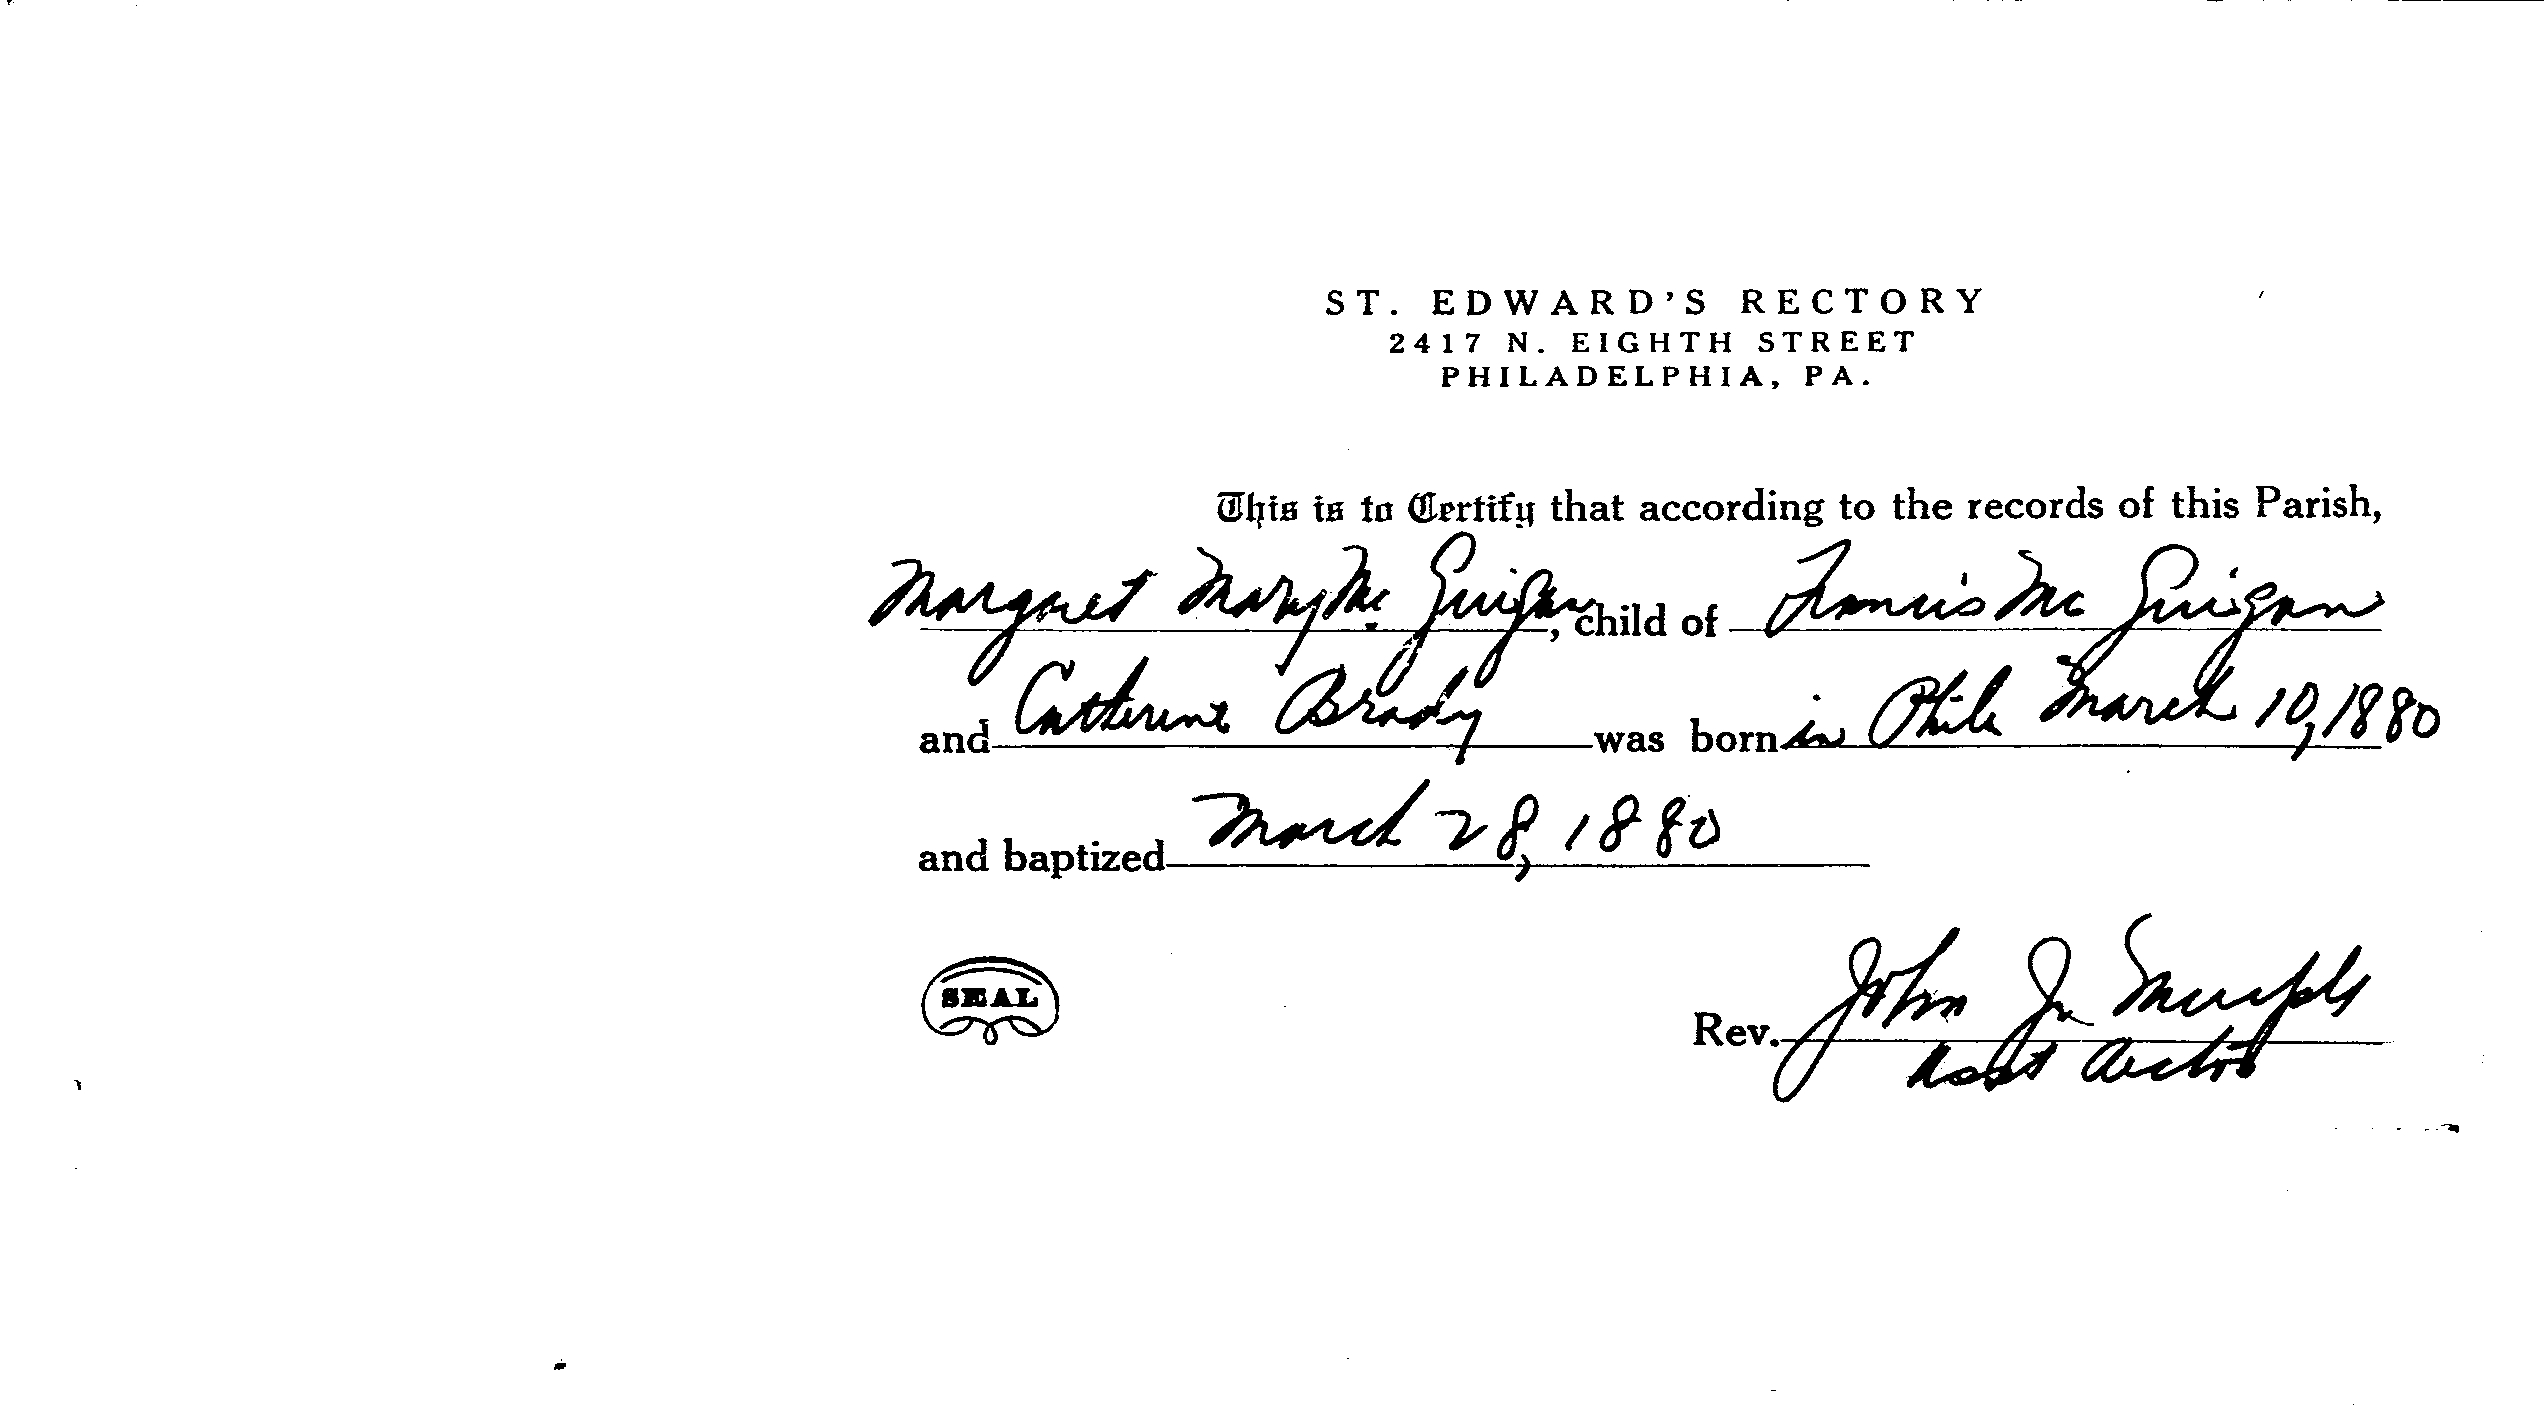 ST. EDWARD'S RECTORY
2417 N. EIGHTH STREET
PHILADELPHIA, PA.
This is to Certify that according to the records of this Parish,
Margaret Mary Mc Guigan, child of Francis Mc Guigan
and Catherine Brady was born in Phila March 10, 1880
and baptized March 28, 1880
SEAL
Rev. John J. Murphy
Asst Rector